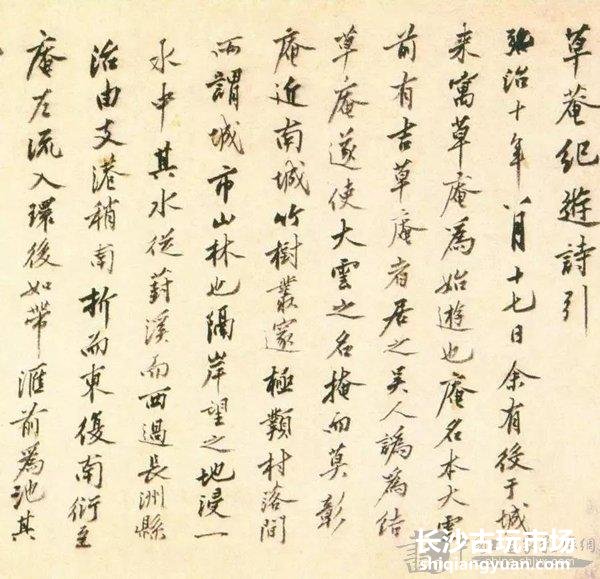 草菴紀遊詩引
弘治十年八月十七日余有役于城
來寓草庵為始遊也庵名本大雲
前有吉草庵者居之吳人譌為結
草庵遂使大雲之名掩而莫彰
庵近南城竹樹叢邃極類村落間
所謂城市山林也隔岸望之地浸一
水中其水從葑溪而西過長洲縣
治由支港稍南折而東復南衍至
庵左流入環後如帶滙前為池其
长沙古玩市场
shiqiangyuan.com